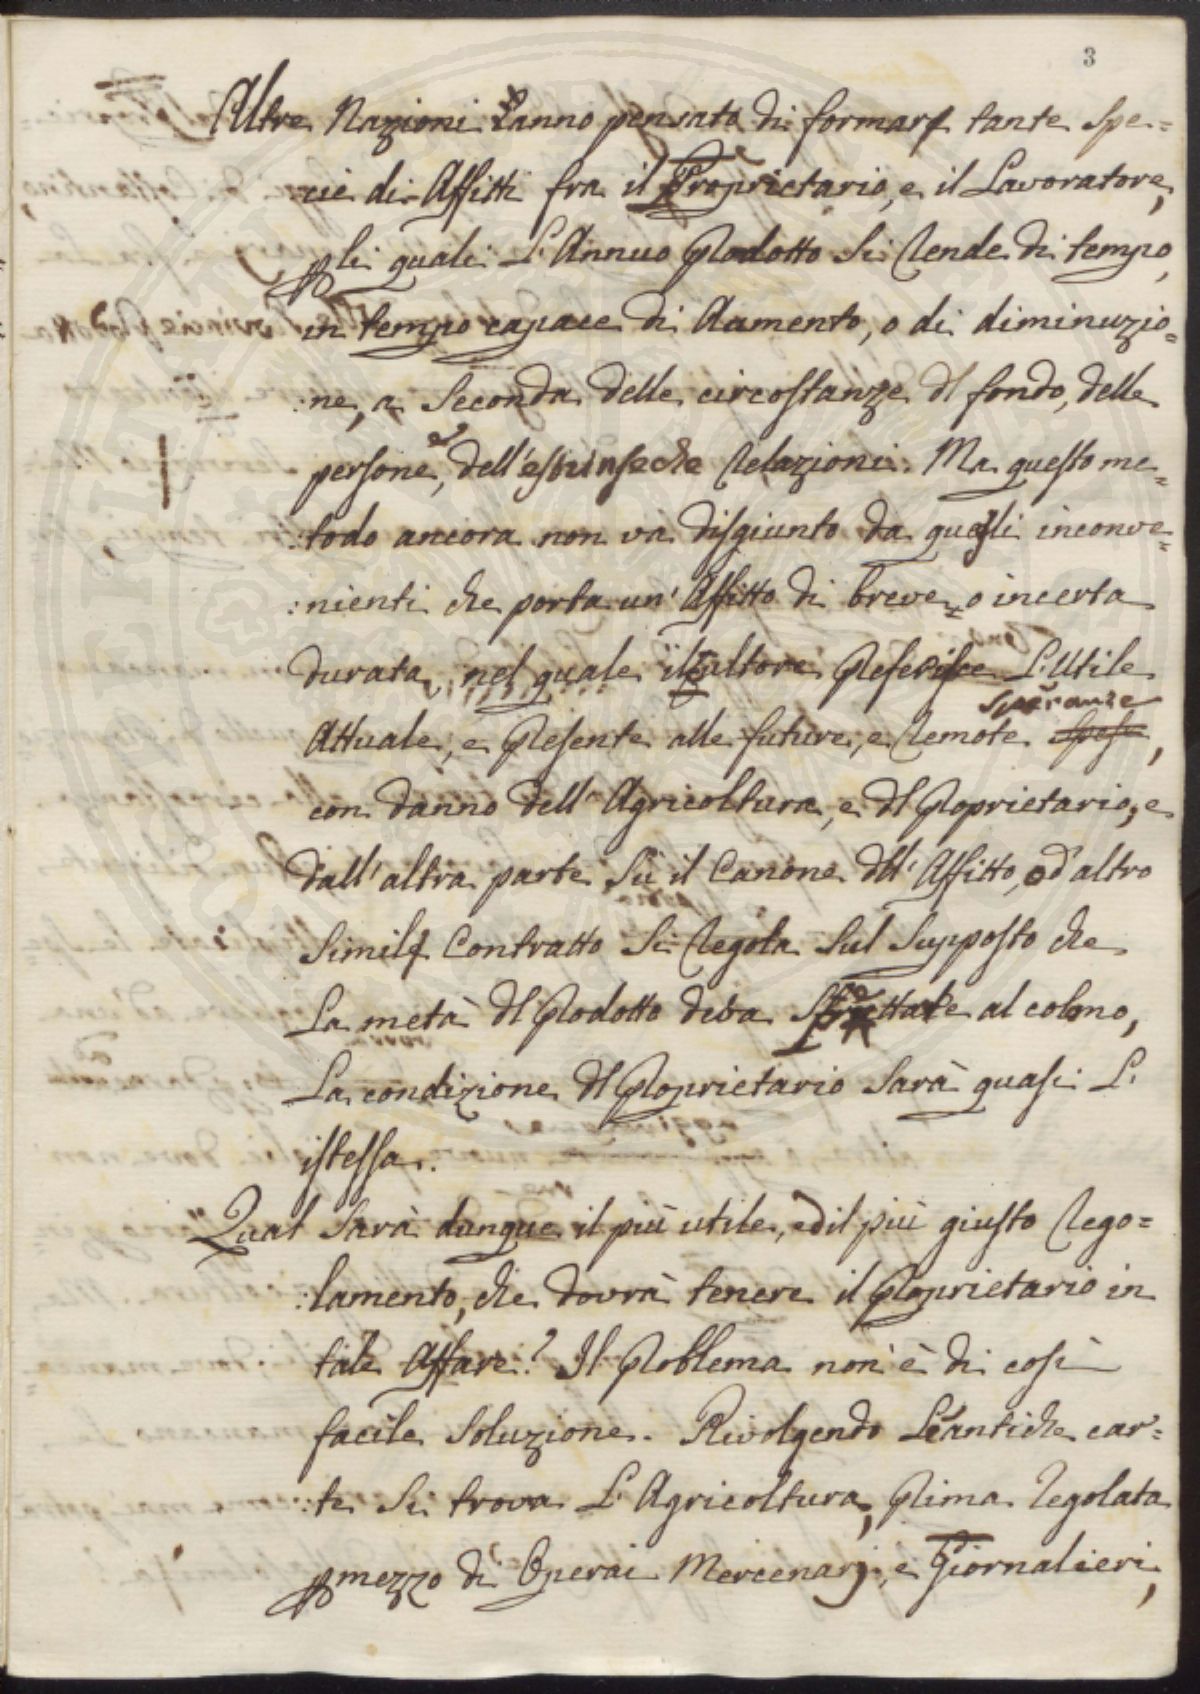 3
Altre Nazioni hanno pensato di formare tante Spe=
cie di Affitti fra il Proprietario, e il Lavoratore,
p li quali L'Annuo Prodotto Si rende di tempo,
in tempo capace di Aumento, o di diminuzio=
:ne, a Seconda delle circostanze dl fondo, delle
persone, e dell'estrinseche relazioni. Ma questo me=
:todo ancora non va disgiunto da quegli inconve=
:nienti che porta un' Affitto di breve, o incerta
durata, nel quale il Cultore Preferisce L'Utile
Speranze
Attuale, e Presente alle future, e remote Spese,
con danno dell'Agricoltura, e dl Proprietario, e
dall'altra parte Su il Canone dll'Affitto, od altro
Simile Contratto Si regola Sul Supposto che
La metà dl Prodotto deba Spettare al colono,
La condizione dl Proprietario Sarà quasi L'
istessa.
Qual Sarà dunque il più utile, ed il più giusto rego=
:lamento, che dovrà tenere il Proprietario in
tale Affare? Il Problema non è di così
facile Soluzione. Rivolgendo Le antiche car=
:te Si trova L'Agricoltura, Prima regolata
p mezzo di Operai Mercenarj, e Giornalieri,